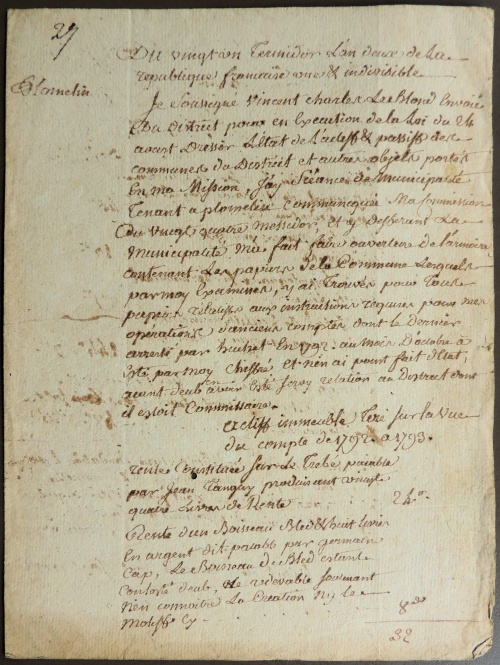 27
Du vingt un Termidor L'an deux de La
republique francoise une & indivisible
Plomelin
Je Soussigné Vincent Charles Le Blond Envoié
Du District pour en Execution de la Loi du 24
aoust Dresser L'Etat de L'actiff & passiff des
communes du District et autres objets portés
En ma Mission, Seance de municipalité
Tenant a plomelin communiqué Ma Commission
du vingt quatre messidor, et y defferant La
Municipalité m'a fait faire ouverture de l'armoire
contenant Les papiers de la Commune Lesquels
par moy Examinés, y ai Trouvés pour Tous
papiers relatifs aux instructions requises pour mes
operations, d'anciens comptes dont le Dernier
arresté par En 1792 au mois D'octobre a
Esté par moy Chiffré et n'en ai point fait d'Etat,
avoir Esté relation au District dont
il estoit Commissaire.
actiff immeuble Tiré sur la vue
du compte de 1792 a 1793.
rente Constituée sur Le Trebe païable
par Jean Tanguy produisant vingt
quatre Livres de Rente 24
Rente d'un Boisseau Bled & huit Livres
En argent dit païable par germain
Cap, Le Boisseau de Bled estant
Le redevable soutenant
N'en connoitre La Creation Ny le
8
32